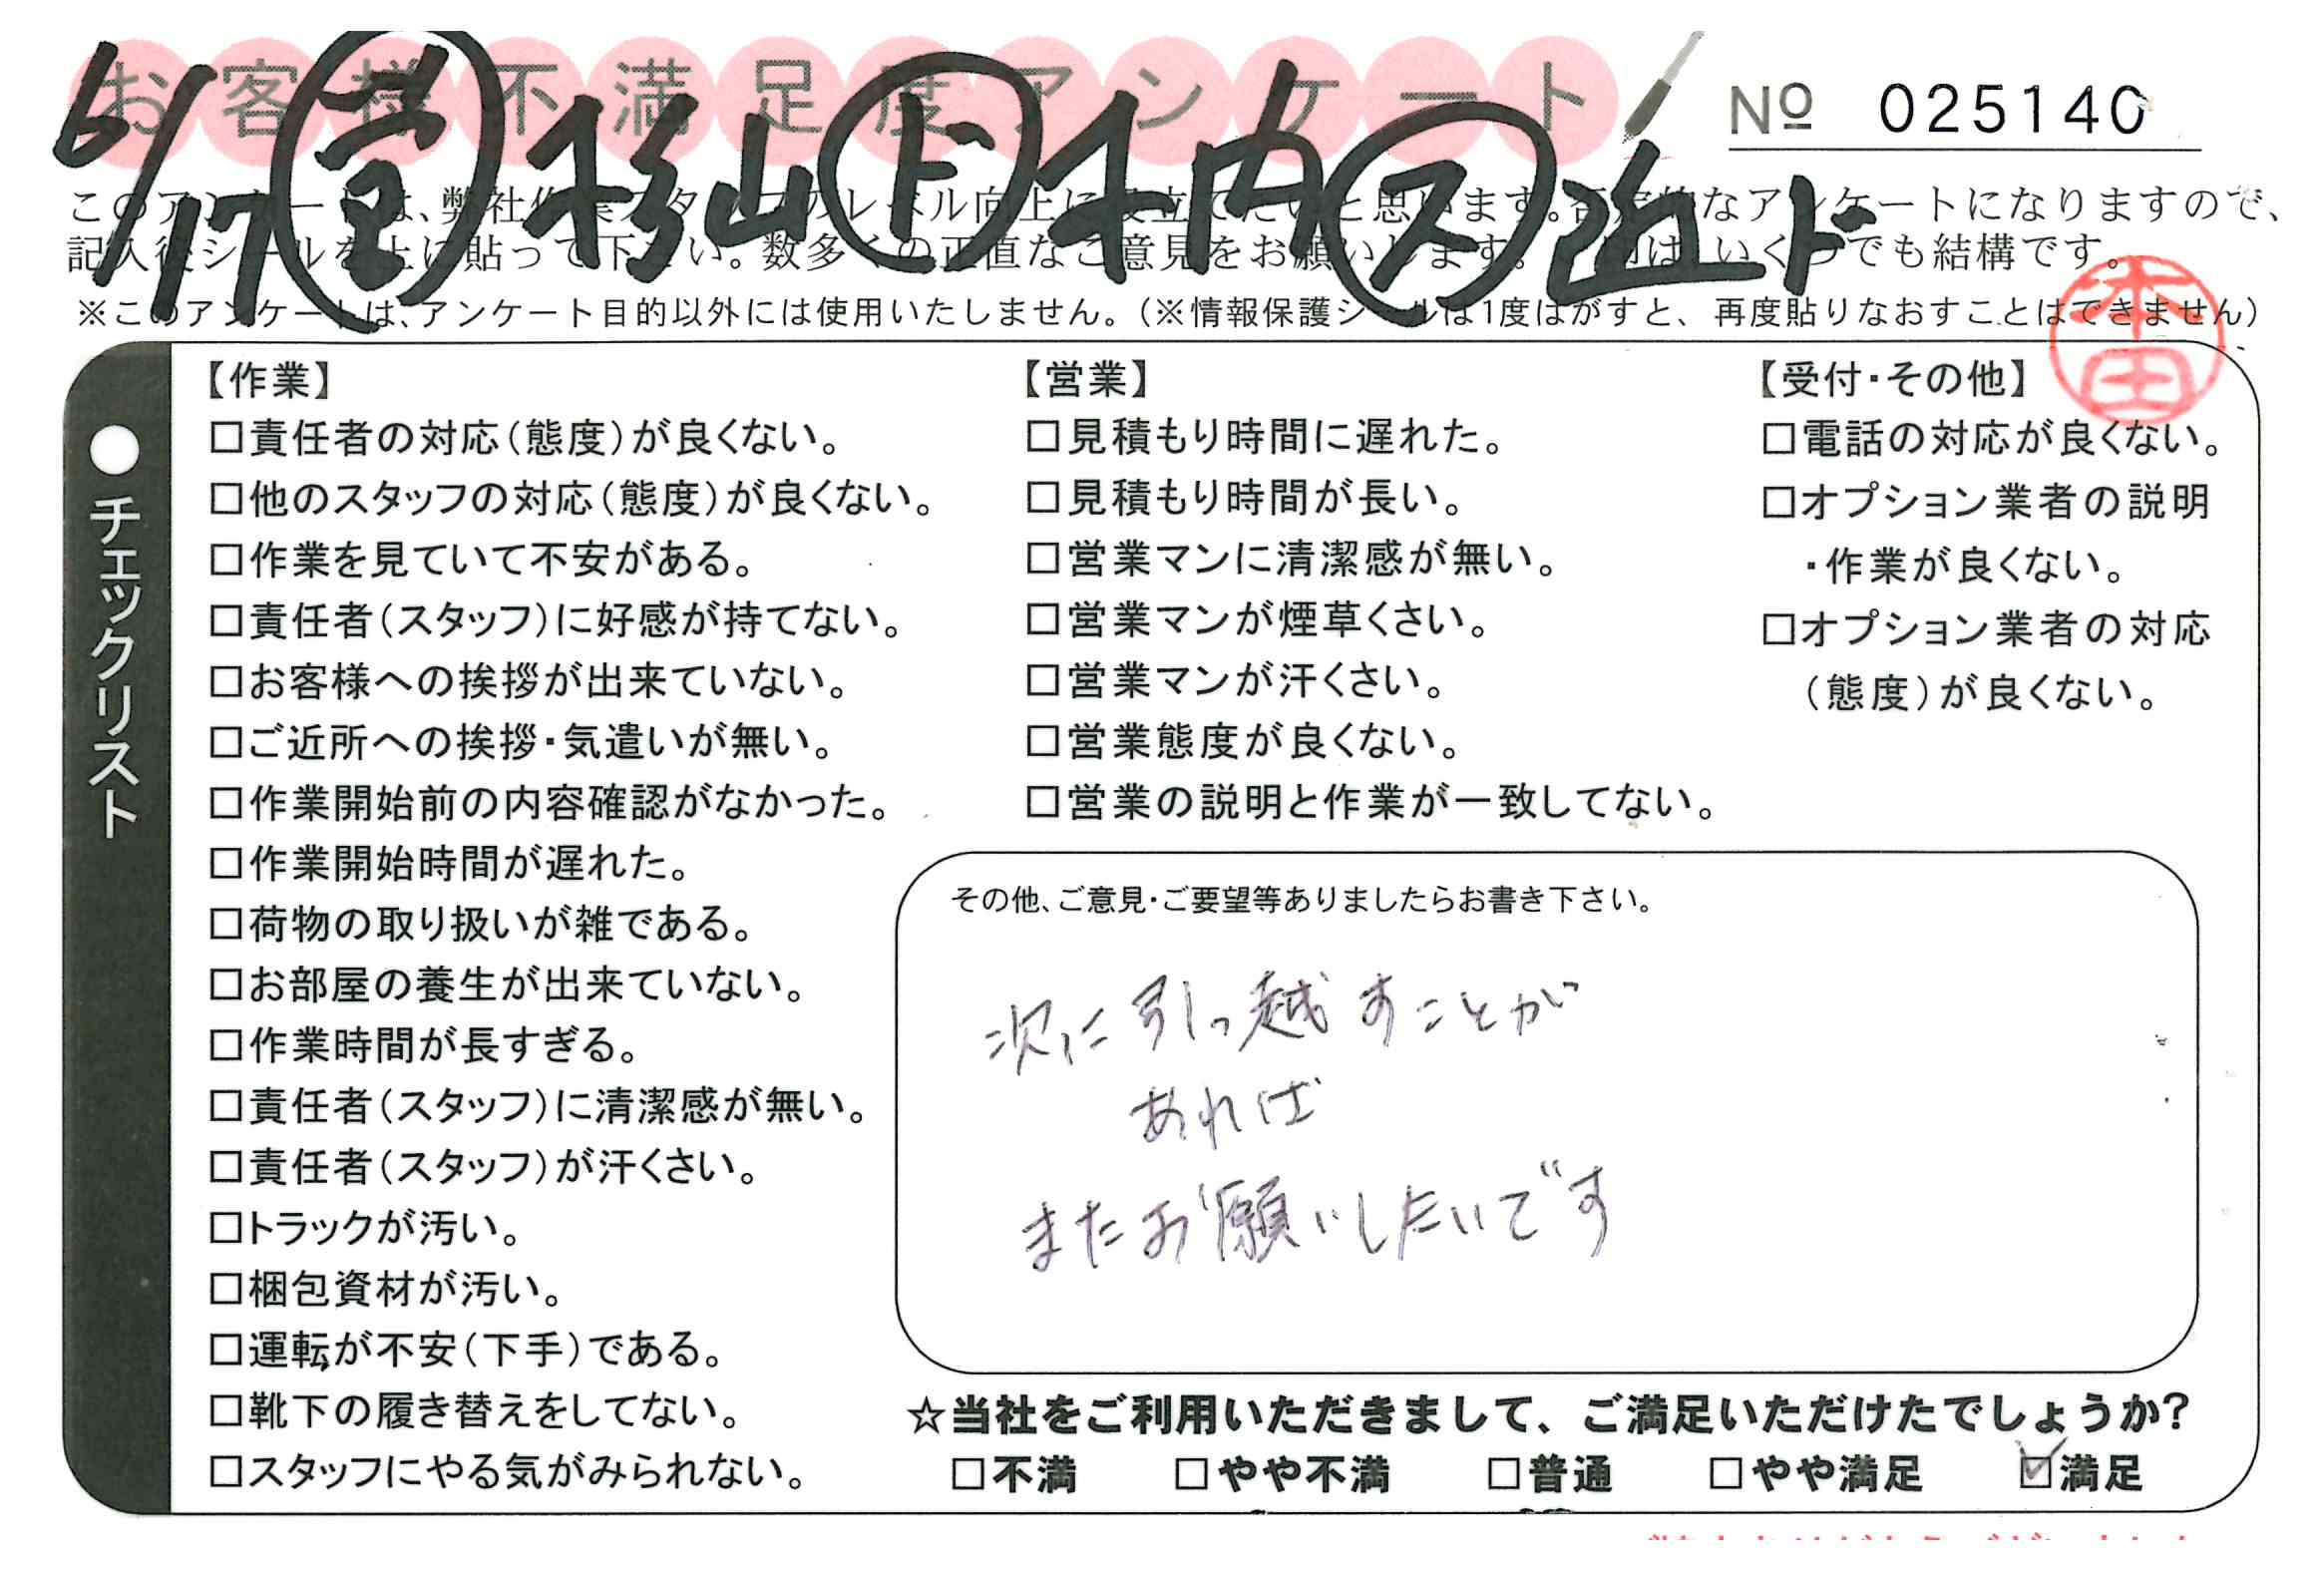 お客様不満足度アンケート
№ 025140
6/17 営 杉山 ト 木内 ス
このアンケートは、弊社作業スタッフのレベル向上に役立てたいと思います。否定的なアンケートになりますので、
記入後シールを上に貼って下さい。数多くの正直なご意見をお願いします。 はいくつでも結構です。
※このアンケートは、アンケート目的以外には使用いたしません。（※情報保護シールは1度はがすと、再度貼りなおすことはできません）
本田
●チェックリスト
【作業】
□責任者の対応（態度）が良くない。
□他のスタッフの対応（態度）が良くない。
□作業を見ていて不安がある。
□責任者（スタッフ）に好感が持てない。
□お客様への挨拶が出来ていない。
□ご近所への挨拶・気遣いが無い。
□作業開始前の内容確認がなかった。
□作業開始時間が遅れた。
□荷物の取り扱いが雑である。
□お部屋の養生が出来ていない。
□作業時間が長すぎる。
□責任者（スタッフ）に清潔感が無い。
□責任者（スタッフ）が汗くさい。
□トラックが汚い。
□梱包資材が汚い。
□運転が不安（下手）である。
□靴下の履き替えをしてない。
□スタッフにやる気がみられない。
【営業】
□見積もり時間に遅れた。
□見積もり時間が長い。
□営業マンに清潔感が無い。
□営業マンが煙草くさい。
□営業マンが汗くさい。
□営業態度が良くない。
□営業の説明と作業が一致してない。
【受付・その他】
□電話の対応が良くない。
□オプション業者の説明
・作業が良くない。
□オプション業者の対応
（態度）が良くない。
その他、ご意見・ご要望等ありましたらお書き下さい。
次に引っ越すことが
あれば
またお願いしたいです
☆当社をご利用いただきまして、ご満足いただけたでしょうか?
□不満 □やや不満 □普通 □やや満足 ☑満足